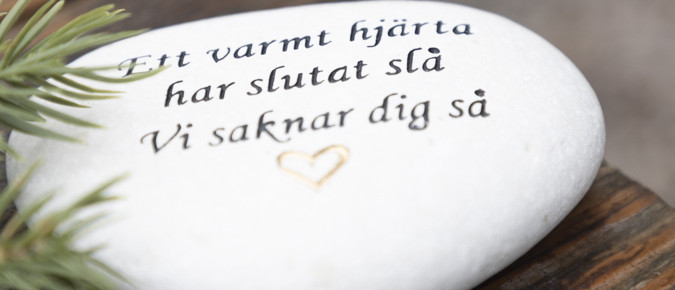 Ett varmt hjärta
har slutat slå
Vi saknar dig så